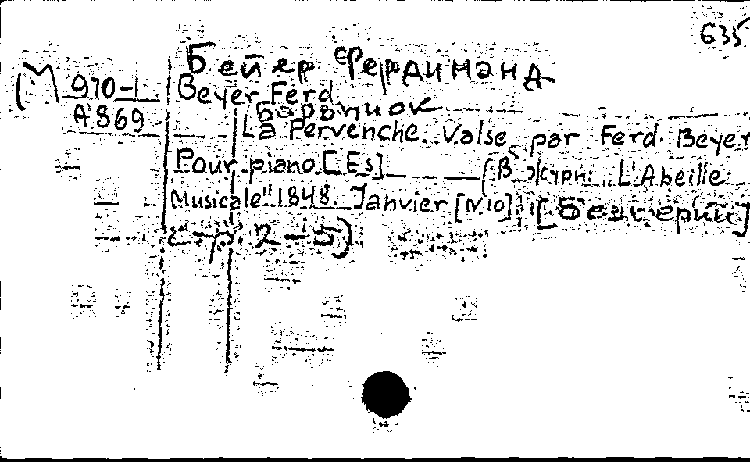 635
Бейер Фердинанд
М 970-1
A 869
Beyer Ferd.
Барвинок
La Pervenche. Valse par Ferd. Beyer
Pour piano [Es]
(В журн. „L'Abeille
Musicale" 1848. Janvier [N.10]) [Без серии]
стр. 2-5)